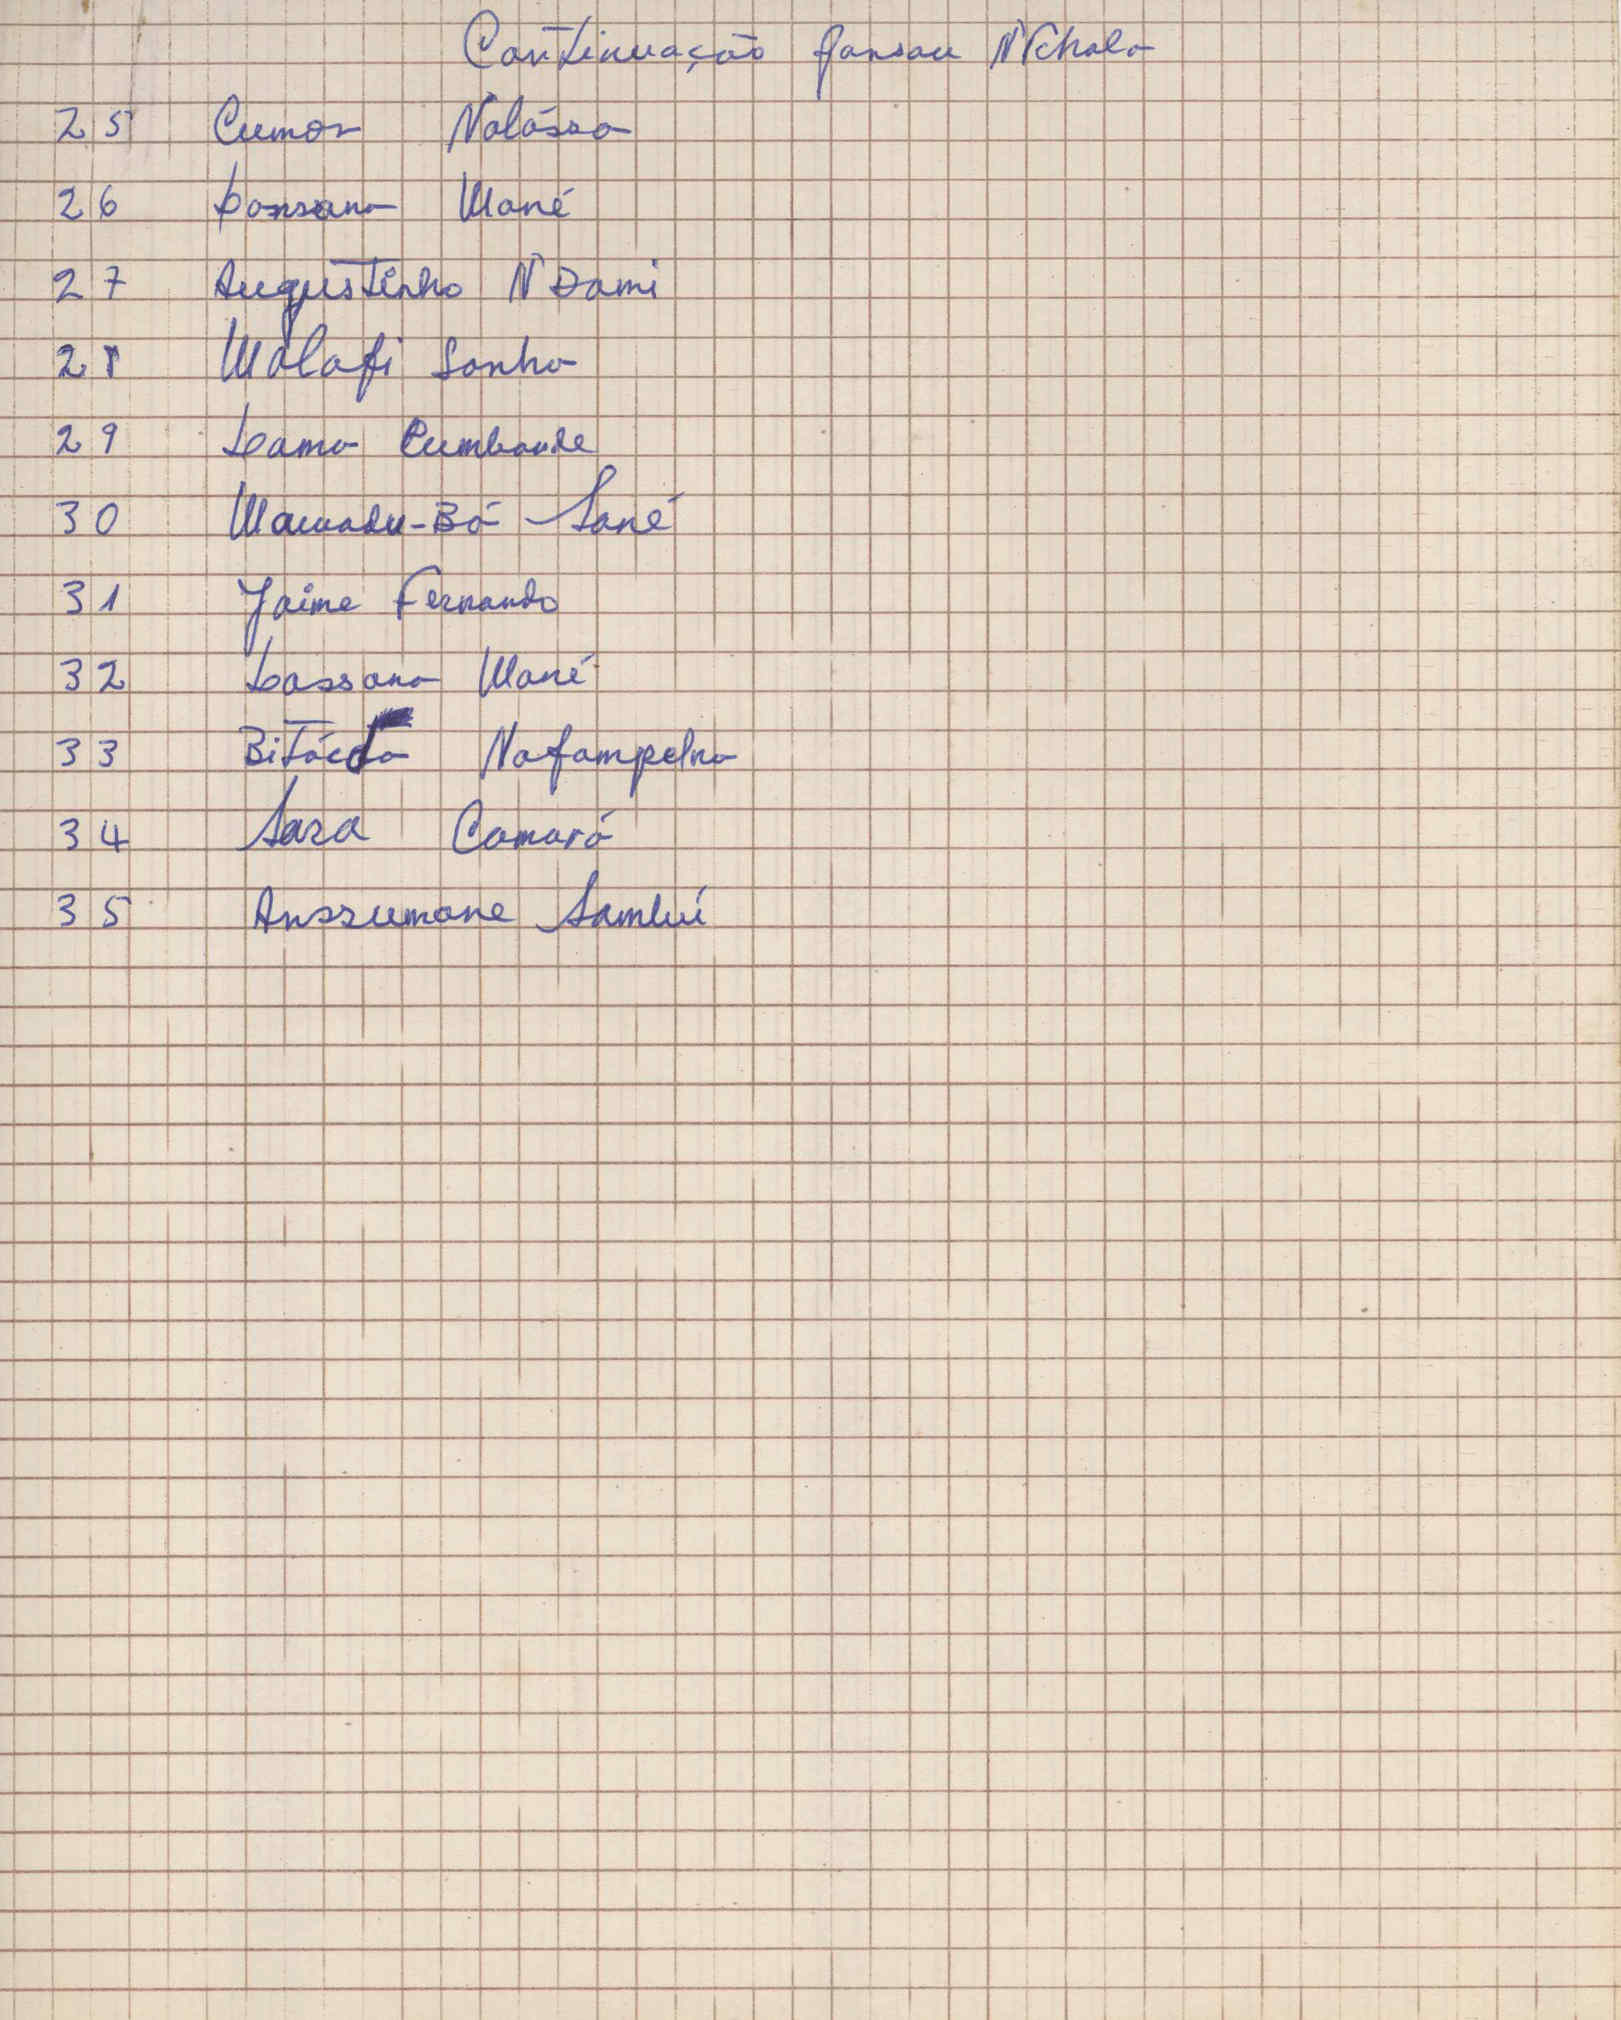 Continuação Gansau N'Tchala
25 Cumor Nalássa
26 Lansana Mané
27 Augustinho N'Dami
28 Malafi Sanha
29 Lama Cumbande
30 Mamadu-Bó Sané
31 Jaime Fernando
32 Lassana Mané
33 Nafampelna
34 Sara Camará
35 Anssumane Sambú